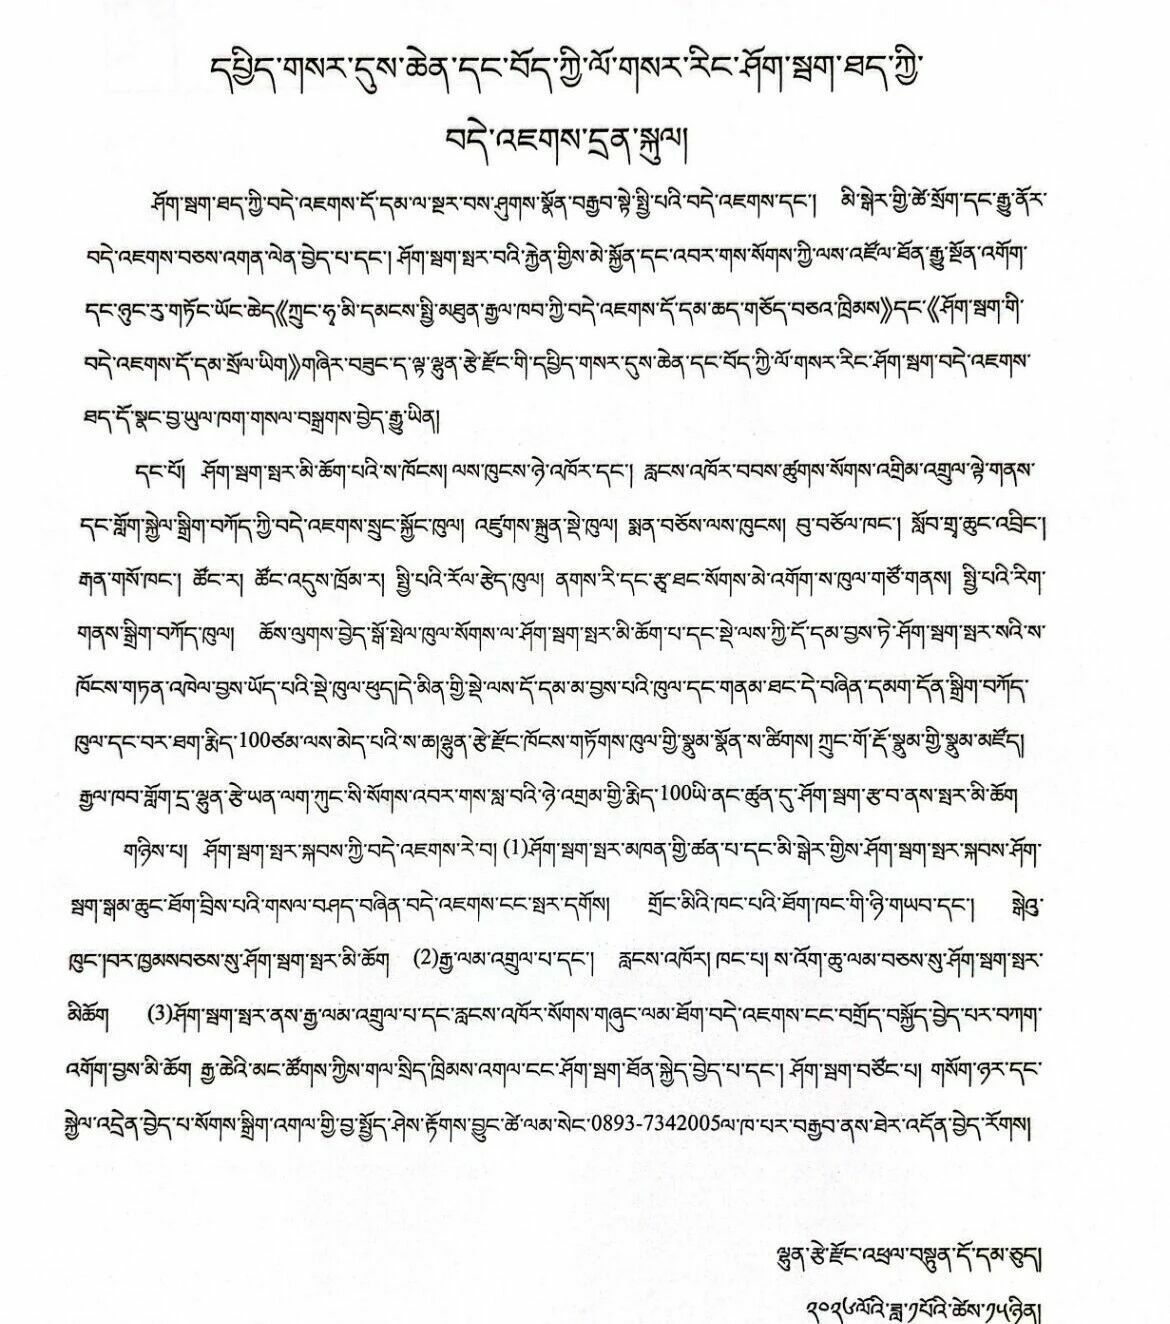 དཔྱིད་གསར་དུས་ཆེན་དང་བོད་ཀྱི་ལོ་གསར་རིང་ཤོག་སྦག་ཐད་ཀྱི་
བདེ་འཇགས་དྲན་སྐུལ།
ཤོག་སྦག་ཐད་ཀྱི་བདེ་འཇགས་དོ་དམ་ལ་སྔར་བས་ཤུགས་སྣོན་བརྒྱབ་སྟེ་སྤྱི་པའི་བདེ་འཇགས་དང་། མི་སྒེར་གྱི་ཚེ་སྲོག་དང་རྒྱུ་ནོར་
བདེ་འཇགས་བཅས་འགན་ལེན་བྱེད་པ་དང་། ཤོག་སྦག་སྤར་བའི་རྐྱེན་གྱིས་མེ་སྐྱོན་དང་འབར་གས་སོགས་ཀྱི་ལས་འཛོལ་ཐོན་རྒྱུ་སྔོན་འགོག་
དང་ཉུང་རུ་གཏོང་ཡོང་ཆེད《ཀྲུང་ཧྭ་མི་དམངས་སྤྱི་མཐུན་རྒྱལ་ཁབ་ཀྱི་བདེ་འཇགས་དོ་དམ་ཆད་གཅོད་བཅའ་ཁྲིམས》དང་《ཤོག་སྦག་གི་
བདེ་འཇགས་དོ་དམ་སྲོལ་ཡིག》གཞིར་བཟུང་ད་ལྟ་ལྷུན་རྩེ་རྫོང་གི་དཔྱིད་གསར་དུས་ཆེན་དང་བོད་ཀྱི་ལོ་གསར་རིང་ཤོག་སྦག་བདེ་འཇགས་
ཐད་དོ་སྣང་བྱ་ཡུལ་ཁག་གསལ་བསྒྲགས་བྱེད་རྒྱུ་ཡིན།
དང་པོ། ཤོག་སྦག་སྤར་མི་ཆོག་པའི་ས་ཁོངས། ལས་ཁུངས་ཉེ་འཁོར་དང་། རླངས་འཁོར་བབས་ཚུགས་སོགས་འགྲིམ་འགྲུལ་ལྟེ་གནས་
དང་གློག་སྐྱེལ་སྒྲིག་བཀོད་ཀྱི་བདེ་འཇགས་སྲུང་སྐྱོང་ཁུལ། འཛུགས་སྐྲུན་སྡེ་ཁུལ། སྨན་བཅོས་ལས་ཁུངས། བུ་བཅོལ་ཁང་། སློབ་གྲྭ་ཆུང་འབྲིང་།
རྒན་གསོ་ཁང་། ཚོང་ར། ཚོང་འདུས་ཁྲོམ་ར། སྤྱི་པའི་རོལ་རྩེད་ཁུལ། ནགས་རི་དང་རྩྭ་ཐང་སོགས་མེ་འགོག་ས་ཁུལ་གཙོ་གནས། སྤྱི་པའི་རིག་
གནས་སྒྲིག་བཀོད་ཁུལ། ཆོས་ལུགས་བྱེད་སྒོ་སྤེལ་ཁུལ་སོགས་ལ་ཤོག་སྦག་སྤར་མི་ཆོག་པ་དང་སྡེ་ལས་ཀྱི་དོ་དམ་བྱས་ཏེ་ཤོག་སྦག་སྤར་སའི་ས་
ཁོངས་གཏན་འཁེལ་བྱས་ཡོད་པའི་སྡེ་ཁུལ་ཕུད།དེ་མིན་གྱི་སྡེ་ལས་དོ་དམ་མ་བྱས་པའི་ཁུལ་དང་གནམ་ཐང་དེ་བཞིན་དམག་དོན་སྒྲིག་བཀོད་
ཁུལ་དང་བར་ཐག་རྨིད་100ཙམ་ལས་མེད་པའི་ས་ཆ།ལྷུན་རྩེ་རྫོང་ཁོངས་གཏོགས་ཁུལ་གྱི་སྣུམ་སྣོན་ས་ཚིགས། ཀྲུང་གོ་རྡོ་སྣུམ་གྱི་སྣུམ་མཛོད།
རྒྱལ་ཁབ་གློག་དྲ་ལྷུན་རྩེ་ཡན་ལག་ཀུང་སི་སོགས་འབར་གས་སླ་བའི་ཉེ་འགྲམ་གྱི་རྨིད་100ཡི་ནང་ཚུན་དུ་ཤོག་སྦག་རྩ་བ་ནས་སྤར་མི་ཆོག
གཉིས་པ། ཤོག་སྦག་སྤར་སྐབས་ཀྱི་བདེ་འཇགས་རེ་བ། (1)ཤོག་སྦག་སྤར་མཁན་གྱི་ཚན་པ་དང་མི་སྒེར་གྱིས་ཤོག་སྦག་སྤར་སྐབས་ཤོག་
སྦག་སྒམ་ཆུང་ཐོག་བྲིས་པའི་གསལ་བཤད་བཞིན་བདེ་འཇགས་ངང་སྤར་དགོས། གྲོང་མིའི་ཁང་པའི་ཐོག་ཁང་གི་ཉི་གཡབ་དང་། སྒེའུ་
ཁུང་།བར་ཁྱམས་བཅས་སུ་ཤོག་སྦག་སྤར་མི་ཆོག (2)རྒྱ་ལམ་འགྲུལ་པ་དང་། རླངས་འཁོར། ཁང་པ། ས་འོག་ཆུ་ལམ་བཅས་སུ་ཤོག་སྦག་སྤར་
མི་ཆོག (3)ཤོག་སྦག་སྤར་ནས་རྒྱ་ལམ་འགྲུལ་པ་དང་རླངས་འཁོར་སོགས་གཞུང་ལམ་ཐོག་བདེ་འཇགས་ངང་བགྲོད་བསྐྱོད་བྱེད་པར་བཀག་
འགོག་བྱས་མི་ཆོག རྒྱ་ཆེའི་མང་ཚོགས་ཀྱིས་གལ་སྲིད་ཁྲིམས་འགལ་ངང་ཤོག་སྦག་ཐོན་སྐྱེད་བྱེད་པ་དང་། ཤོག་སྦག་བཙོང་པ། གསོག་ཉར་དང་
སྐྱེལ་འདྲེན་བྱེད་པ་སོགས་སྒྲིག་འགལ་གྱི་བྱ་སྤྱོད་ཤེས་རྟོགས་བྱུང་ཚེ་ལམ་སེང་0893-7342005ལ་ཁ་པར་བརྒྱབ་ནས་ཐེར་འདོན་བྱེད་རོགས།
ལྷུན་རྩེ་རྫོང་འཕྲལ་བསྟུན་དོ་དམ་ཅུད།
༢༠༢༦ལོའི་ཟླ་༡པོའི་ཚེས་༡༥ཉིན།